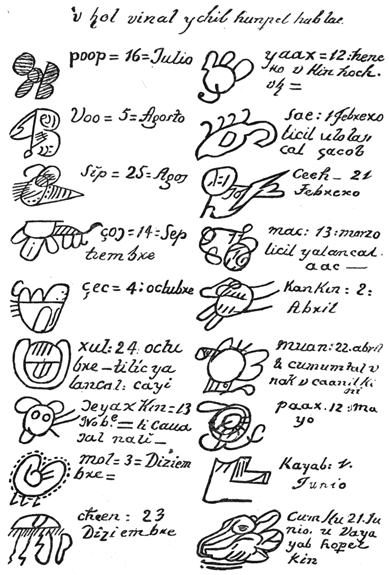 v hol vinal ychil hunpel hab lae.
poop = 16 = Julio
Voo = 5 = Agosto
Sip = 25 = Agos
çoɔ = 14 = Sep
tiem bre
çec = 4: octubre
xul: 24 octu
bre — tilic ya
lancal: cayi
Ɔeyax Kin = 13
Nobᵉ = li caua
ɔal nali —
mol = 3 = Diziem
bre =
cheen: 23
Diziembre
yaax = 12: hene
ro v kin hoch.
sac: 1 febrero
licil u lolan
cal sacob
Ceeh _ 21
Febrero
mac: 13: marzo
licil yalancal.
aac —
Kan Kin: 2:
Abril
muan: 22. abril
& cumumtal v
nak v caanil ki
ni
paax. 12: ma
yo
Kayab: 1.
Junio
Cum Ku 21. Ju
nio. u Vaya
yab hopel
kin